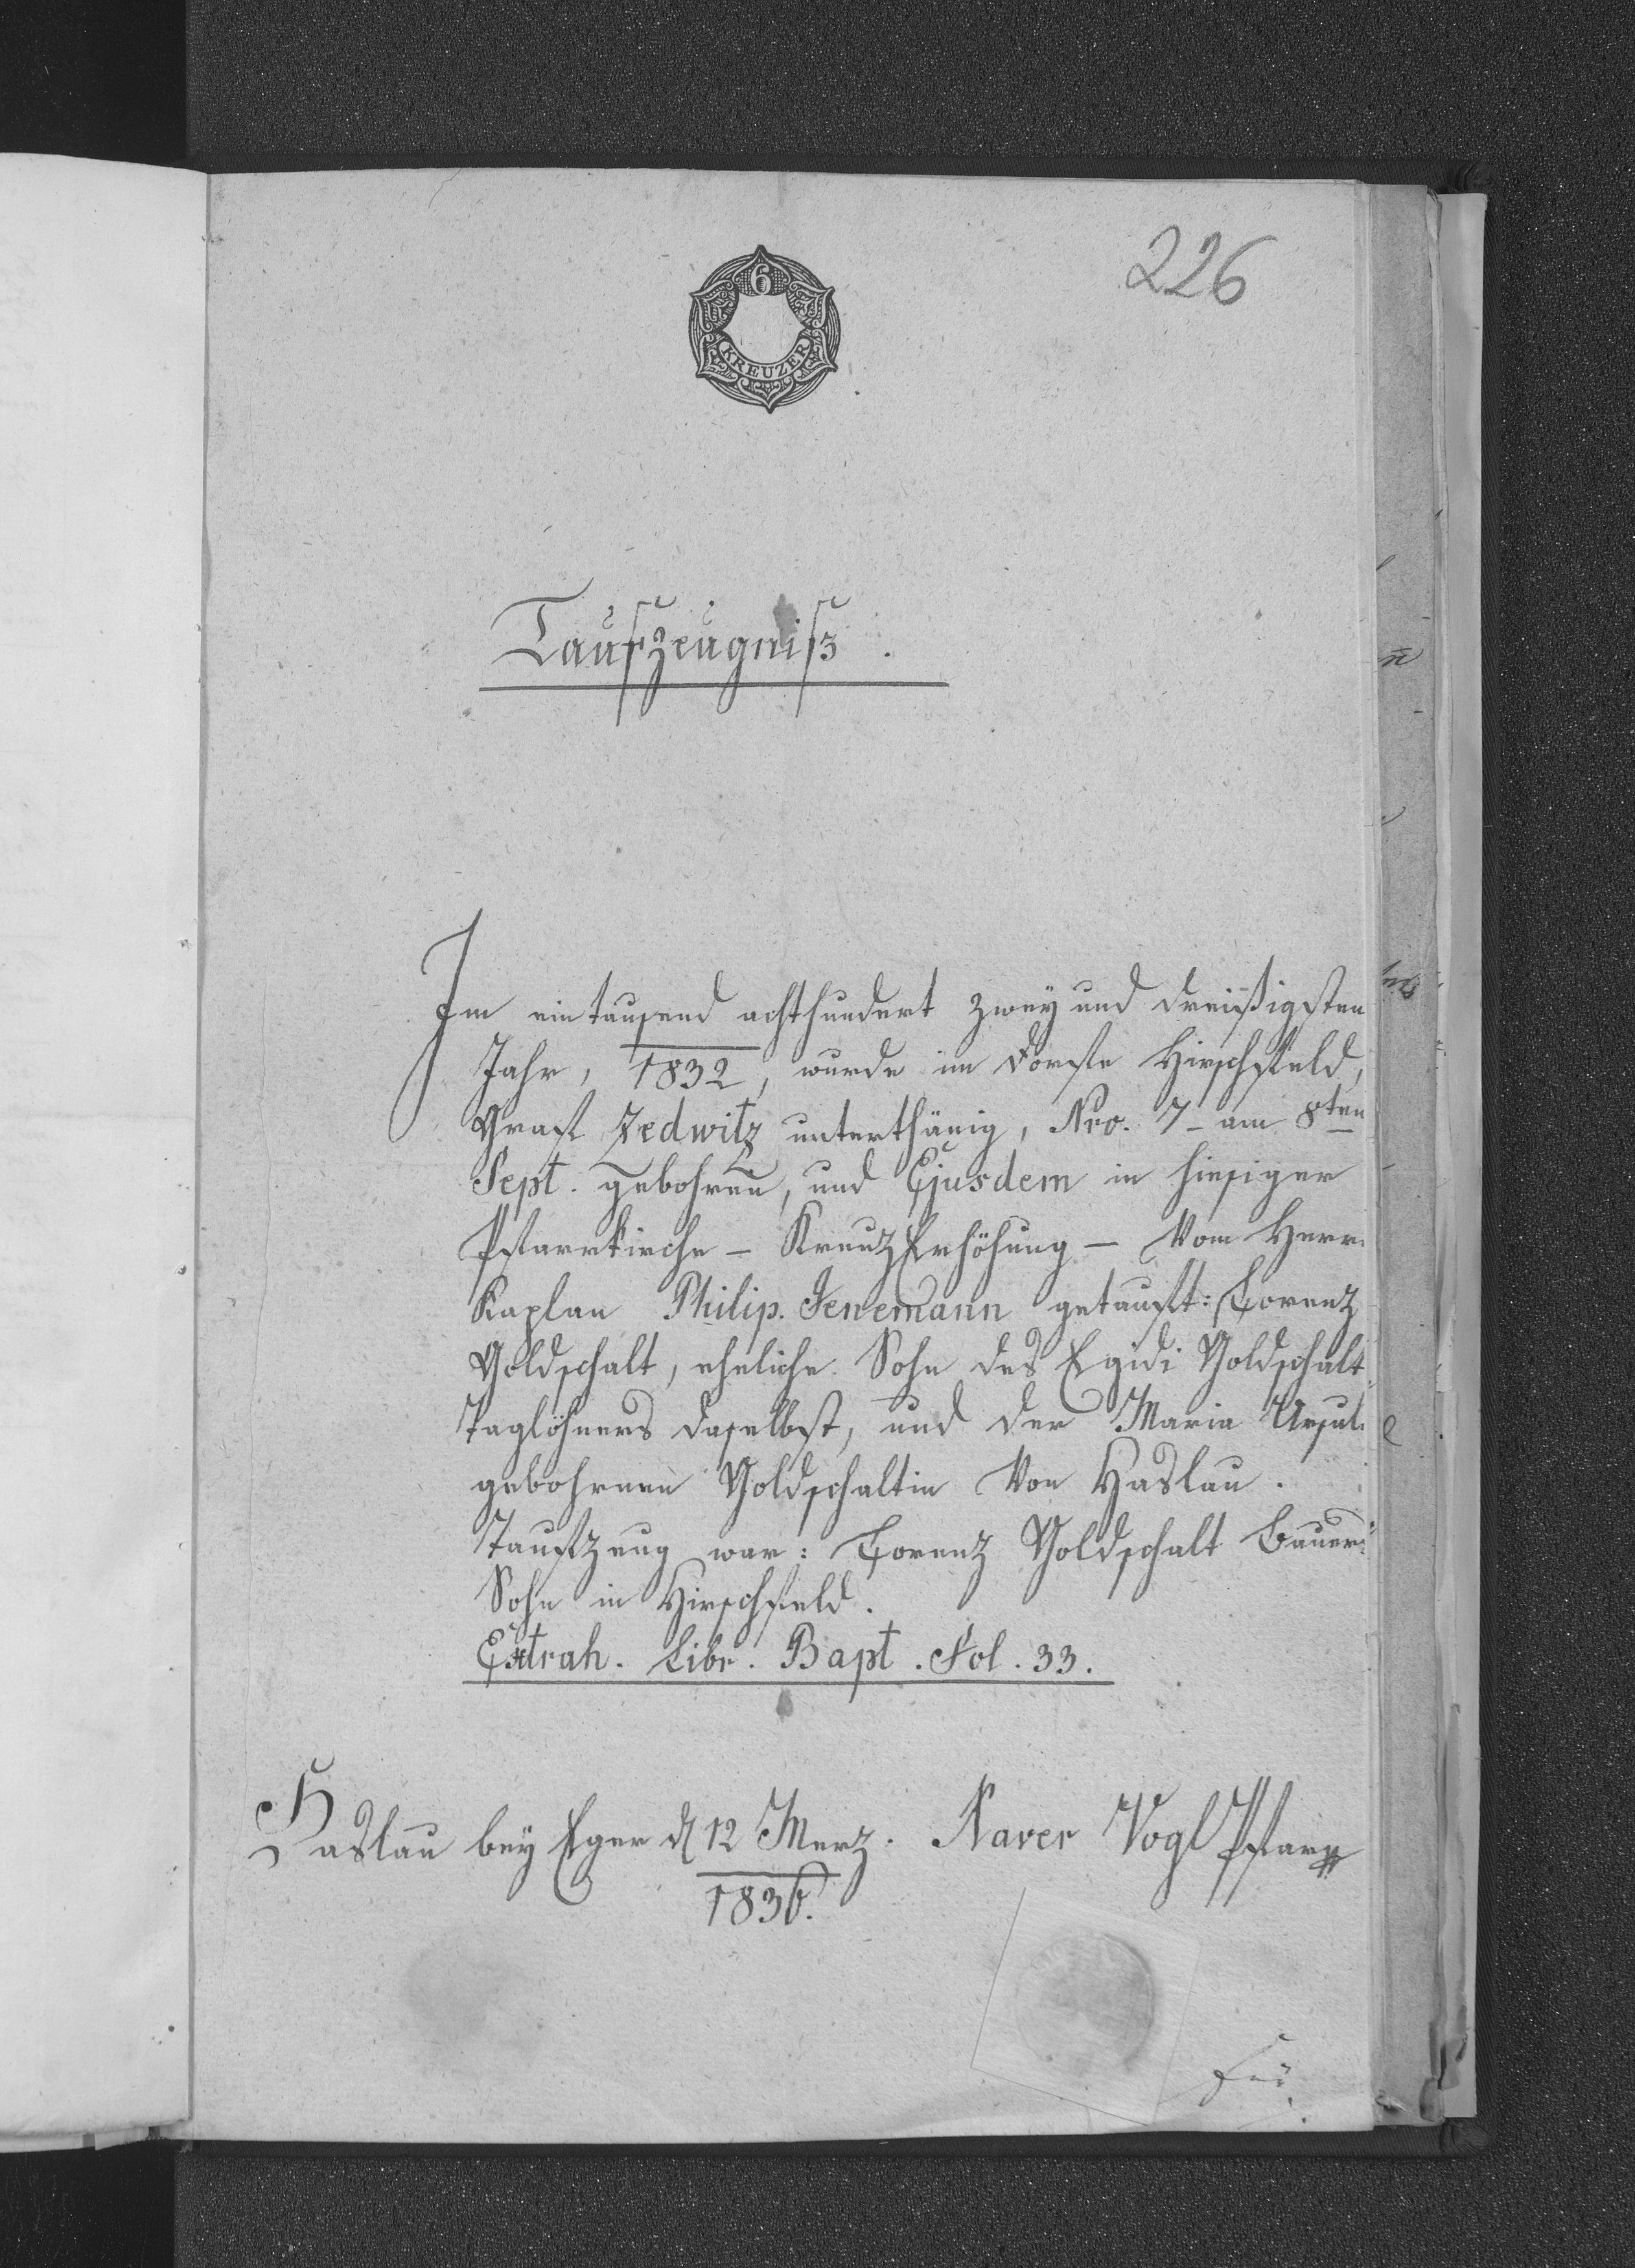 226
6
KREUZER
Taufzeugniß.
Im eintausend achthundert zwey und dreißigsten
Jahr, 1832, wurde im Dorfe Hirschfeld,
Graf Zedwitz unterthänig, Nro. 7 - am 8ten
Sept. gebohren, und Ejusdem in hiesiger
Pfarrkirche - Kreuz Erhöhung - Vom Herrn
Kaplan Philip. Jenemann getauft: Lorenz
Goldschalt, eheliche Sohn des Egidi Goldschalt
Taglöhners daselbst, und der Maria Ursul
gebohrnen Goldschaltin Von Haslau.
Taufzeug war: Lorenz Goldschalt Bauer
Sohn in Hirschfeld.
Extrah. Libr. Bapt. Fol. 33.
Haslau bey Eger d 12 Merz. Xaver Vogl Pfarr
1836.